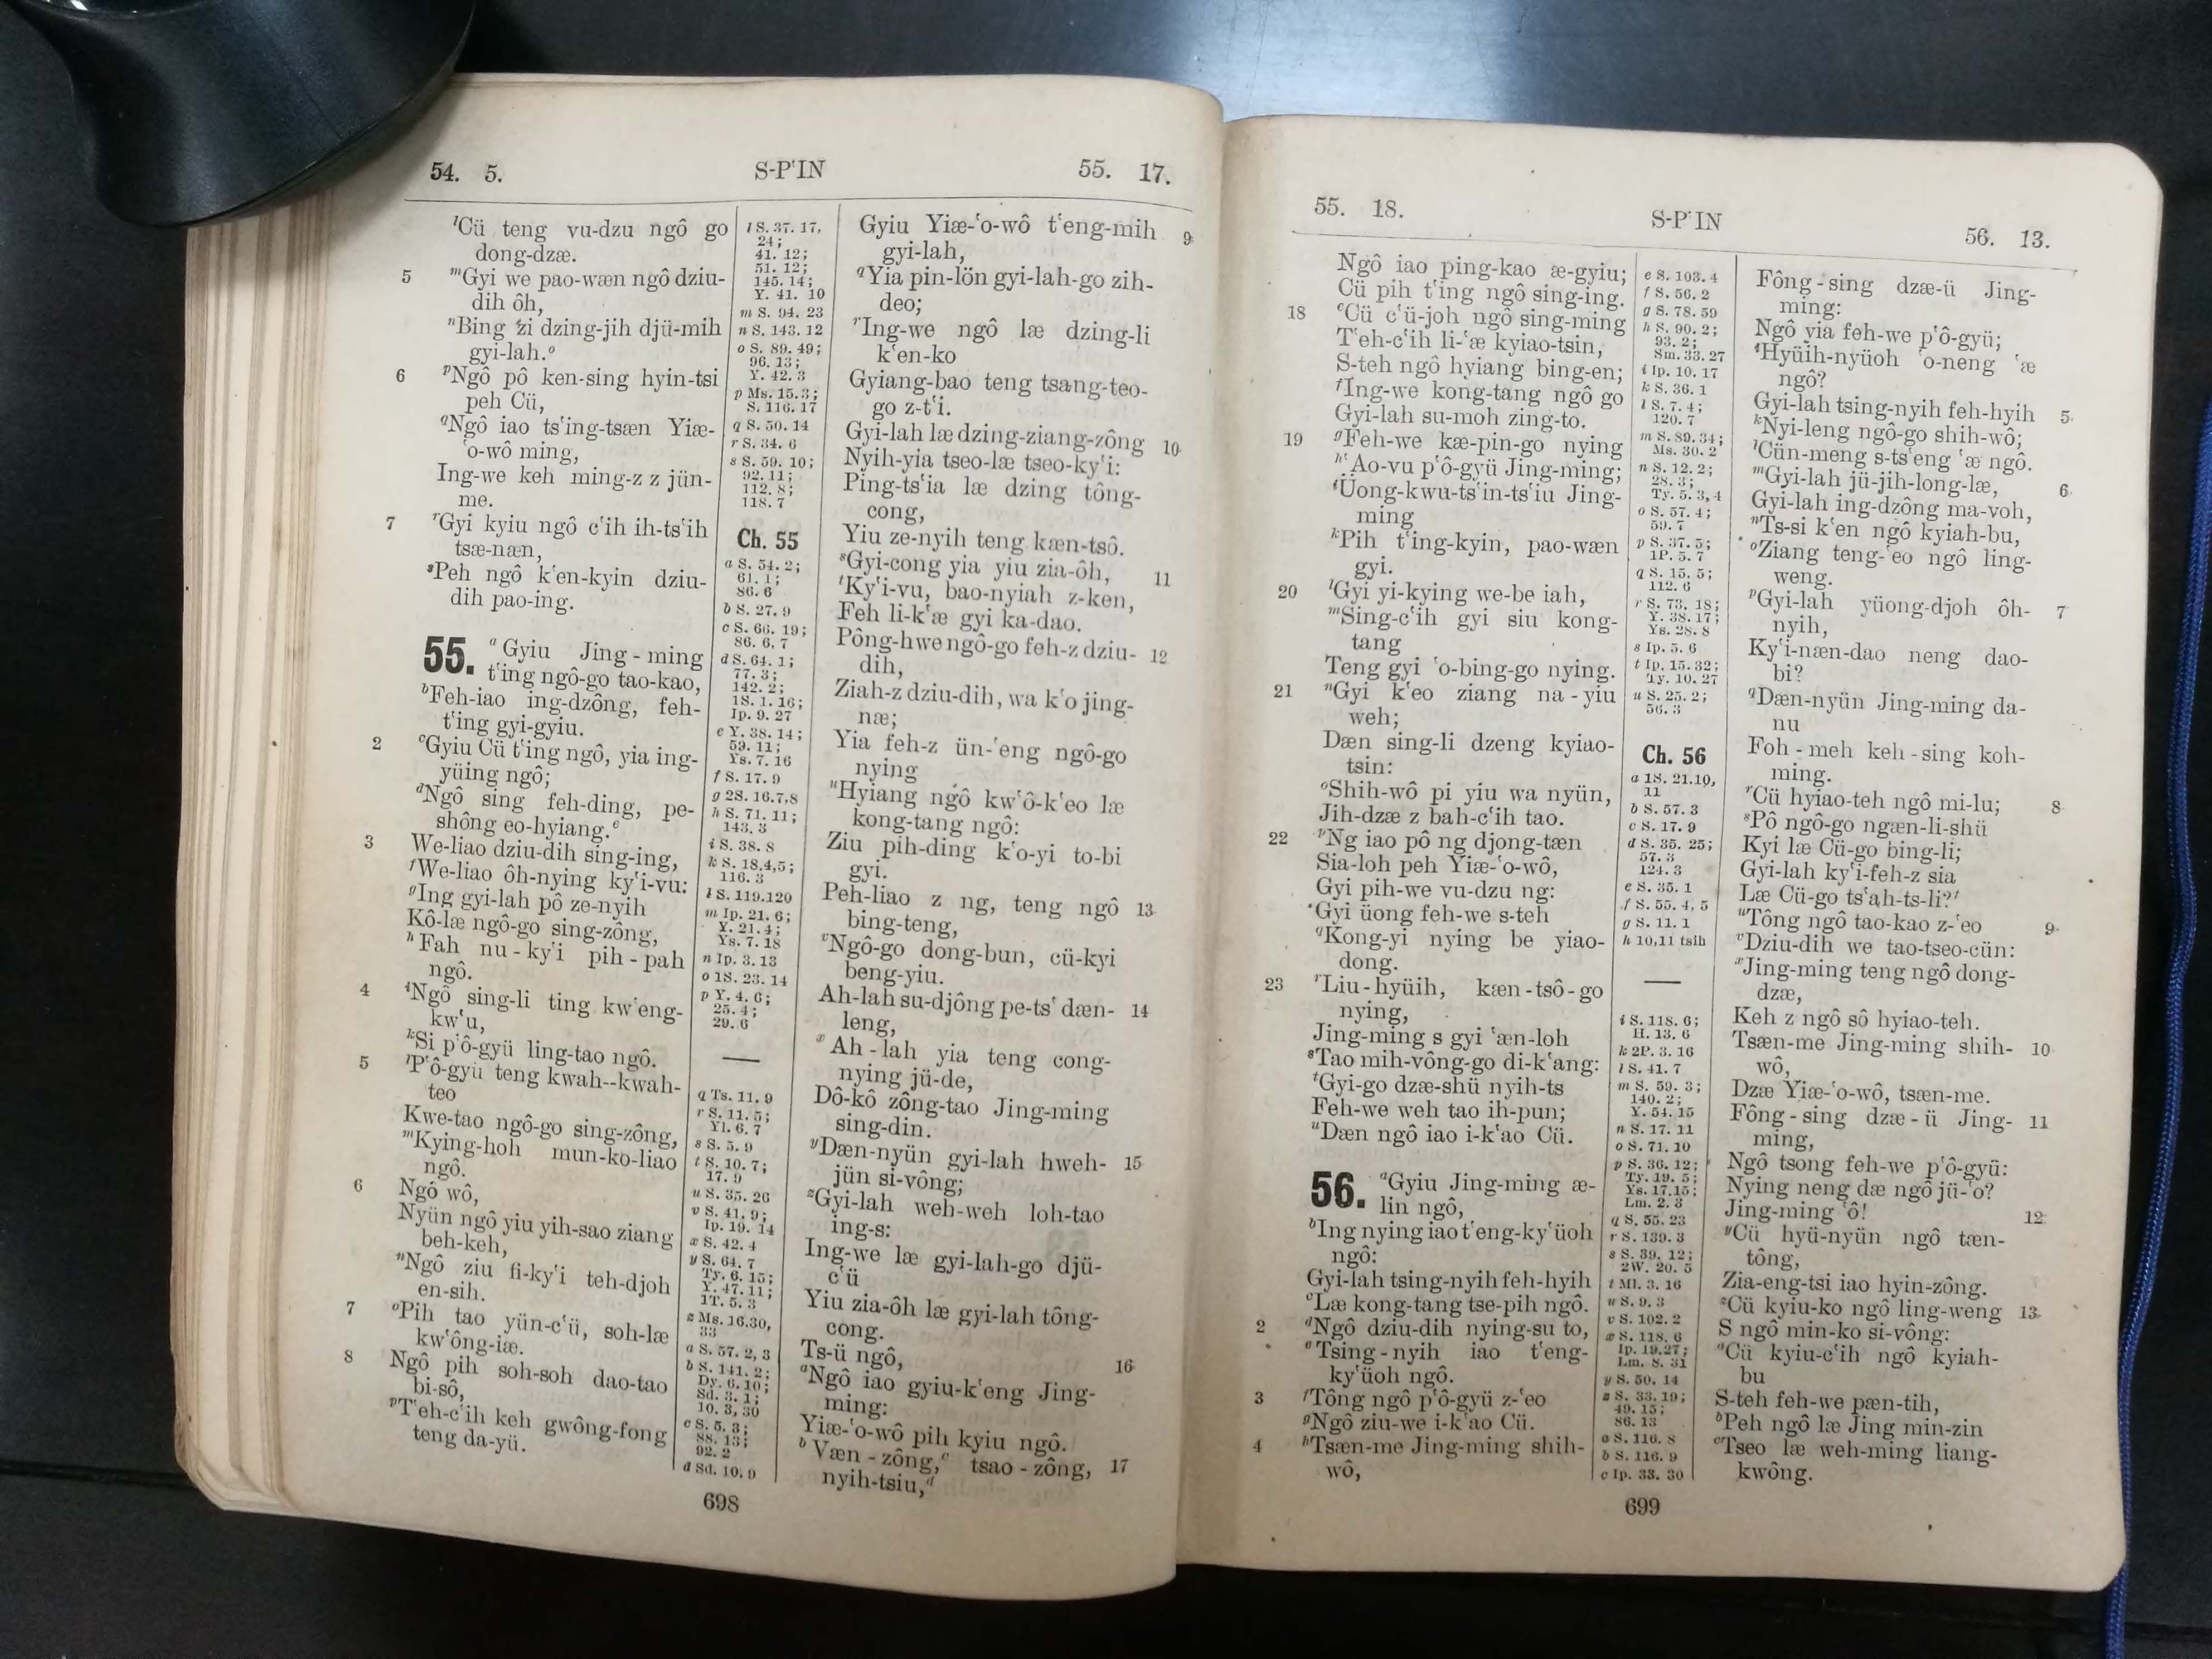 54. 5.
S-PʻIN
55. 17.
ˡCü teng vu-dzu ngô go
dong-dzæ.
5 ᵐGyi we pao-wæn ngô dziu-
dih ôh,
ⁿBing ʻzi dzing-jih djü-mih
gyi-lah.ᵒ
6 ᵖNgô pô ken-sing hyin-tsi
peh Cü,
ᑫNgô iao tsʻing-tsæn Yiæ-
ʻo-wô ming,
Ing-we keh ming-z z jün-
me.
7 ʳGyi kyiu ngô cʻih ih-tsʻih
tsæ-næn,
ˢPeh ngô kʻen-kyin dziu-
dih pao-ing.
55. ᵃGyiu Jing-ming
tʻing ngô-go tao-kao,
ᵇFeh-iao ing-dzông, feh-
tʻing gyi-gyiu.
2 ᶜGyiu Cü tʻing ngô, yia ing-
yüing ngô;
ᵈNgô sing feh-ding, pe-
shông eo-hyiang.ᵉ
3 We-liao dziu-dih sing-ing,
ᶠWe-liao ôh-nying kyʻi-vu:
ᵍIng gyi-lah pô ze-nyih
Kô-læ ngô-go sing-zông,
ʰFah nu-kyʻi pih-pah
ngô.
4 ⁱNgô sing-li ting kwʻeng-
kwʻu,
ᵏSi pʻô-gyü ling-tao ngô.
5 ˡPʻô-gyü teng kwah--kwah-
teo
Kwe-tao ngô-go sing-zông,
ᵐKying-hoh mun-ko-liao
ngô.
6 Ngô wô,
Nyün ngô yiu yih-sao ziang
beh-keh,
ⁿNgô ziu fi-kyʻi teh-djoh
en-sih.
7 ᵒPih tao yün-cʻü, soh-læ
kwʻông-iæ.
8 Ngô pih soh-soh dao-tao
bi-sô,
ᵖTʻeh-cʻih keh gwông-fong
teng da-yü.
l S. 37. 17,
24;
41. 12;
51. 12;
145. 14;
Y. 41. 10
m S. 94. 23
n S. 143. 12
o S. 89. 49;
96. 13;
Y. 42. 3
p Ms. 15. 3;
S. 116. 17
q S. 50. 14
r S. 34. 6
s S. 59. 10;
92. 11;
112. 8;
118. 7
Ch. 55
a S. 54. 2;
61. 1;
86. 6
b S. 27. 9
c S. 66. 19;
86. 6, 7
d S. 64. 1;
77. 3;
142. 2;
1S. 1. 16;
Ip. 9. 27
e Y. 38. 14;
59. 11;
Ys. 7. 16
f S. 17. 9
g 2S. 16.7,8
h S. 71. 11;
143. 3
i S. 38. 8
k S. 18.4,5;
116. 3
l S. 119.120
m Ip. 21. 6;
Y. 21. 4;
Ys. 7. 18
n Ip. 3. 13
o 1S. 23. 14
p Y. 4. 6;
25. 4;
29. 6
q Ts. 11. 9
r S. 11. 5;
Yl. 6. 7
s S. 5. 9
t S. 10. 7;
17. 9
u S. 35. 26
v S. 41. 9;
Ip. 19. 14
x S. 42. 4
y S. 64. 7
Ty. 6. 15;
Y. 47. 11;
1T. 5. 3
z Ms. 16.30,
33
a S. 57. 2, 3
b S. 141. 2;
Dy. 6. 10;
Sd. 3. 1;
10. 3, 30
c S. 5. 3;
88. 13;
92. 2
d Sd. 10. 9
Gyiu Yiæ-ʻo-wô tʻeng-mih 9
gyi-lah,
ᑫYia pin-lön gyi-lah-go zih-
deo;
ʳIng-we ngô læ dzing-li
kʻen-ko
Gyiang-bao teng tsang-teo-
go z-tʻi.
Gyi-lah læ dzing-ziang-zông 10
Nyih-yia tseo-læ tseo-kyʻi:
Ping-tsʻia læ dzing tông-
cong,
Yiu ze-nyih teng kæn-tsô.
ˢGyi-cong yia yiu zia-ôh, 11
ᵗKyʻi-vu, bao-nyiah z-ken,
Feh li-kʻæ gyi ka-dao.
Pông-hwe ngô-go feh-z dziu- 12
dih,
Ziah-z dziu-dih, wa kʻo jing-
næ;
Yia feh-z ün-ʻeng ngô-go
nying
ᵘHyiang ngô kwʻô-kʻeo læ
kong-tang ngô:
Ziu pih-ding kʻo-yi to-bi
gyi.
Peh-liao z ng, teng ngô 13
bing-teng,
ᵛNgô-go dong-bun, cü-kyi
beng-yiu.
Ah-lah su-djông pe-tsʻ dæn- 14
leng,
ˣAh-lah yia teng cong-
nying jü-de,
Dô-kô zông-tao Jing-ming
sing-din.
ʸDæn-nyün gyi-lah hweh- 15
jün si-vông;
ᶻGyi-lah weh-weh loh-tao
ing-s:
Ing-we læ gyi-lah-go djü-
cʻü
Yiu zia-ôh læ gyi-lah tông-
cong.
Ts-ü ngô, 16
ᵃNgô iao gyiu-kʻeng Jing-
ming:
Yiæ-ʻo-wô pih kyiu ngô.
ᵇVæn-zông,ᶜ tsao-zông, 17
nyih-tsiu,ᵈ
698
55. 18.
S-PʻIN
56. 13.
Ngô iao ping-kao æ-gyiu;
Cü pih tʻing ngô sing-ing.
18 ᵉCü cʻü-joh ngô sing-ming
Tʻeh-cʻih li-ʻæ kyiao-tsin,
S-teh ngô hyiang bing-en;
ᶠIng-we kong-tang ngô go
Gyi-lah su-moh zing-to.
19 ᵍFeh-we kæ-pin-go nying
ʰʻAo-vu pʻô-gyü Jing-ming;
ⁱÜong-kwu-tsʻin-tsʻiu Jing-
ming
ᵏPih tʻing-kyin, pao-wæn
gyi.
20 ˡGyi yi-kying we-be iah,
ᵐSing-cʻih gyi siu kong-
tang
Teng gyi ʻo-bing-go nying.
21 ⁿGyi kʻeo ziang na-yiu
weh;
Dæn sing-li dzeng kyiao-
tsin:
ᵒShih-wô pi yiu wa nyün,
Jih-dzæ z bah-cʻih tao.
22 ᵖNg iao pô ng djong-tæn
Sia-loh peh Yiæ-ʻo-wô,
Gyi pih-we vu-dzu ng:
Gyi üong feh-we s-teh
ᑫKong-yi nying be yiao-
dong.
23 ʳLiu-hyüih, kæn-tsô-go
nying,
Jing-ming s gyi ʻæn-loh
ˢTao mih-vông-go di-kʻang:
ᵗGyi-go dzæ-shü nyih-ts
Feh-we weh tao ih-pun;
ᵘDæn ngô iao i-kʻao Cü.
56. ᵃGyiu Jing-ming æ-
lin ngô,
ᵇIng nying iao tʻeng-kyʻüoh
ngô:
Gyi-lah tsing-nyih feh-hyih
ᶜLæ kong-tang tse-pih ngô.
2 ᵈNgô dziu-dih nying-su to,
ᵉTsing-nyih iao tʻeng-
kyʻüoh ngô.
3 ᶠTông ngô pʻô-gyü z-ʻeo
ᵍNgô ziu-we i-kʻao Cü.
4 ʰTsæn-me Jing-ming shih-
wô,
e S. 103. 4
f S. 56. 2
g S. 78. 59
h S. 90. 2;
93. 2;
Sm. 33. 27
i Ip. 10. 17
k S. 36. 1
l S. 7. 4;
120. 7
m S. 89. 34;
Ms. 30. 2
n S. 12. 2;
28. 3;
Ty. 5. 3, 4
o S. 57. 4;
59. 7
p S. 37. 5;
1P. 5. 7
q S. 15. 5;
112. 6
r S. 73. 18;
Y. 38. 17;
Ys. 28. 8
s Ip. 5. 6
t Ip. 15. 32;
Ty. 10. 27
u S. 25. 2;
56. 3
Ch. 56
a 1S. 21.10,
11
b S. 57. 3
c S. 17. 9
d S. 35. 25;
57. 3
124. 3
e S. 35. 1
f S. 55. 4, 5
g S. 11. 1
h 10,11 tsih
i S. 118. 6;
H. 13. 6
k 2P. 3. 16
l S. 41. 7
m S. 59. 3;
140. 2;
Y. 54. 15
n S. 17. 11
o S. 71. 10
p S. 36. 12;
Ty. 19. 5;
Ys. 17.15;
Lm. 2. 3
q S. 55. 23
r S. 139. 3
s S. 39. 12;
2W. 20. 5
t Ml. 3. 16
u S. 9. 3
v S. 102. 2
x S. 118. 6
Ip. 19.27;
Lm. 8. 31
y S. 50. 14
z S. 33. 19;
49. 15;
86. 13
a S. 116. 8
b S. 116. 9
c Ip. 33. 30
Fông-sing dzæ-ü Jing-
ming:
Ngô yia feh-we pʻô-gyü;
ⁱHyüih-nyüoh ʻo-neng ʻæ
ngô?
Gyi-lah tsing-nyih feh-hyih 5
ᵏNyi-leng ngô-go shih-wô;
ˡCün-meng s-tsʻeng ʻæ ngô.
ᵐGyi-lah jü-jih-long-læ, 6
Gyi-lah ing-dzông ma-voh,
ⁿTs-si kʻen ngô kyiah-bu,
ᵒZiang teng-ʻeo ngô ling-
weng.
ᵖGyi-lah yüong-djoh ôh- 7
nyih,
Kyʻi-næn-dao neng dao-
bi?
ᑫDæn-nyün Jing-ming da-
nu
Foh-meh keh-sing koh-
ming.
ʳCü hyiao-teh ngô mi-lu; 8
ˢPô ngô-go ngæn-li-shü
Kyi læ Cü-go bing-li;
Gyi-lah kyʻi-feh-z sia
Læ Cü-go tsʻah-ts-li?ᵗ
ᵘTông ngô tao-kao z-ʻeo 9
ᵛDziu-dih we tao-tseo-cün:
ˣJing-ming teng ngô dong-
dzæ,
Keh z ngô sô hyiao-teh.
Tsæn-me Jing-ming shih- 10
wô,
Dzæ Yiæ-ʻo-wô, tsæn-me.
Fông-sing dzæ-ü Jing- 11
ming,
Ngô tsong feh-we pʻô-gyü:
Nying neng dæ ngô jü-ʻo?
Jing-ming ʻô! 12
ʸCü hyü-nyün ngô tæn-
tông,
Zia-eng-tsi iao hyin-zông.
ᶻCü kyiu-ko ngô ling-weng 13
S ngô min-ko si-vông:
ᵃCü kyiu-cʻih ngô kyiah-
bu
S-teh feh-we pæn-tih,
ᵇPeh ngô læ Jing min-zin
ᶜTseo læ weh-ming liang-
kwông.
699